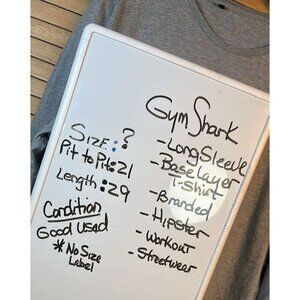 Gym Shark
Size: ?
Pit to Pit: 21
Length: 29
Condition
Good Used
* No Size
Label
- Long Sleeve
- Base Layer
T-Shirt
- Branded
- Hipster
- Workout
- Streetwear